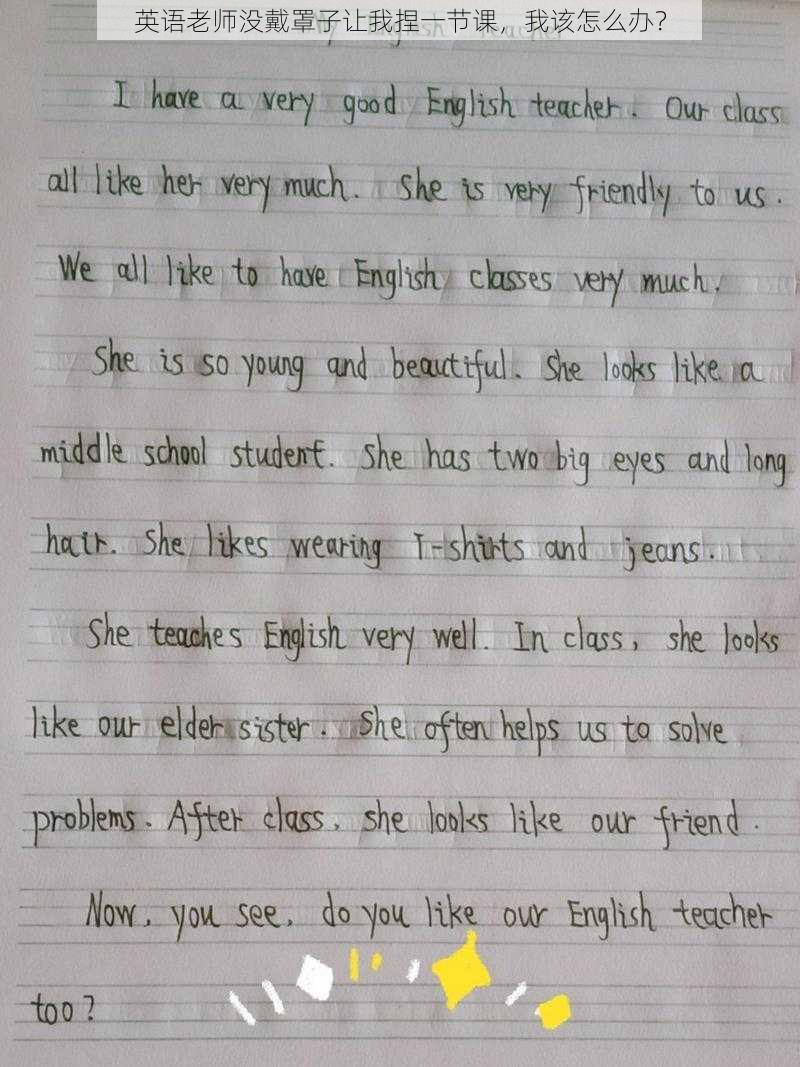 英语老师没戴罩子让我捏一节课，我该怎么办？
My English teacher
I have a very good English teacher. Our class
all like her very much. She is very friendly to us.
We all like to have English classes very much.
She is so young and beautiful. She looks like a
middle school student. She has two big eyes and long
hair. She likes wearing T-shirts and jeans.
She teaches English very well. In class, she looks
like our elder sister. She often helps us to solve
problems. After class, she looks like our friend.
Now, you see, do you like our English teacher
too?